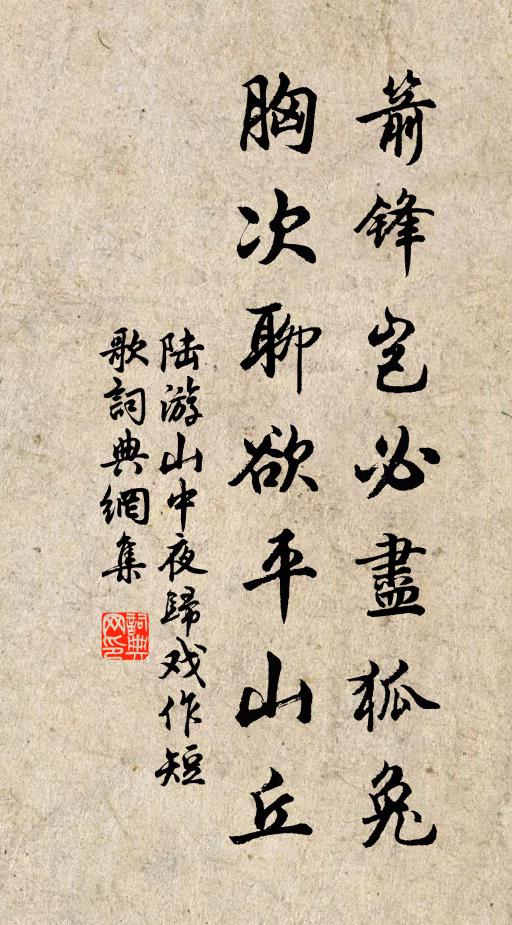 箭鋒岂必盡狐兔
胸次聊欲平山丘
陆游山中夜歸戏作短
歌詞典網集
詞典
网印